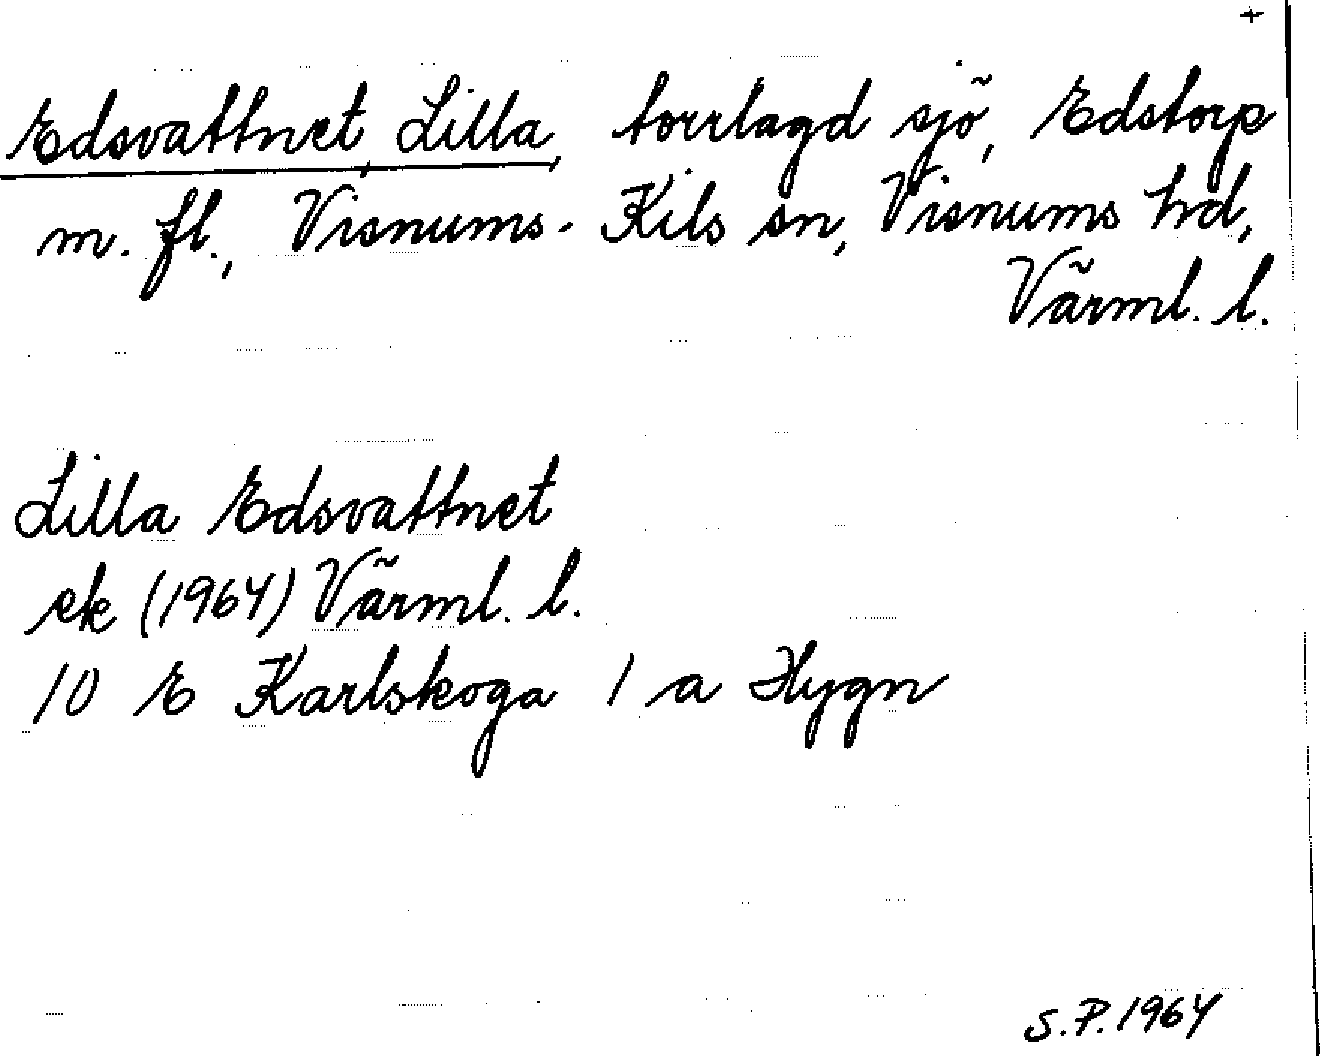 +
Edsvattnet, Lilla, torrlagd sjö, Edstorp
m. fl., Visnums-Kils sn, Visnums hd,
Värml. l.
Lilla Edsvattnet
ek (1964) Värml. l.
10 E Karlskoga 1 a Hygn
S.P. 1964